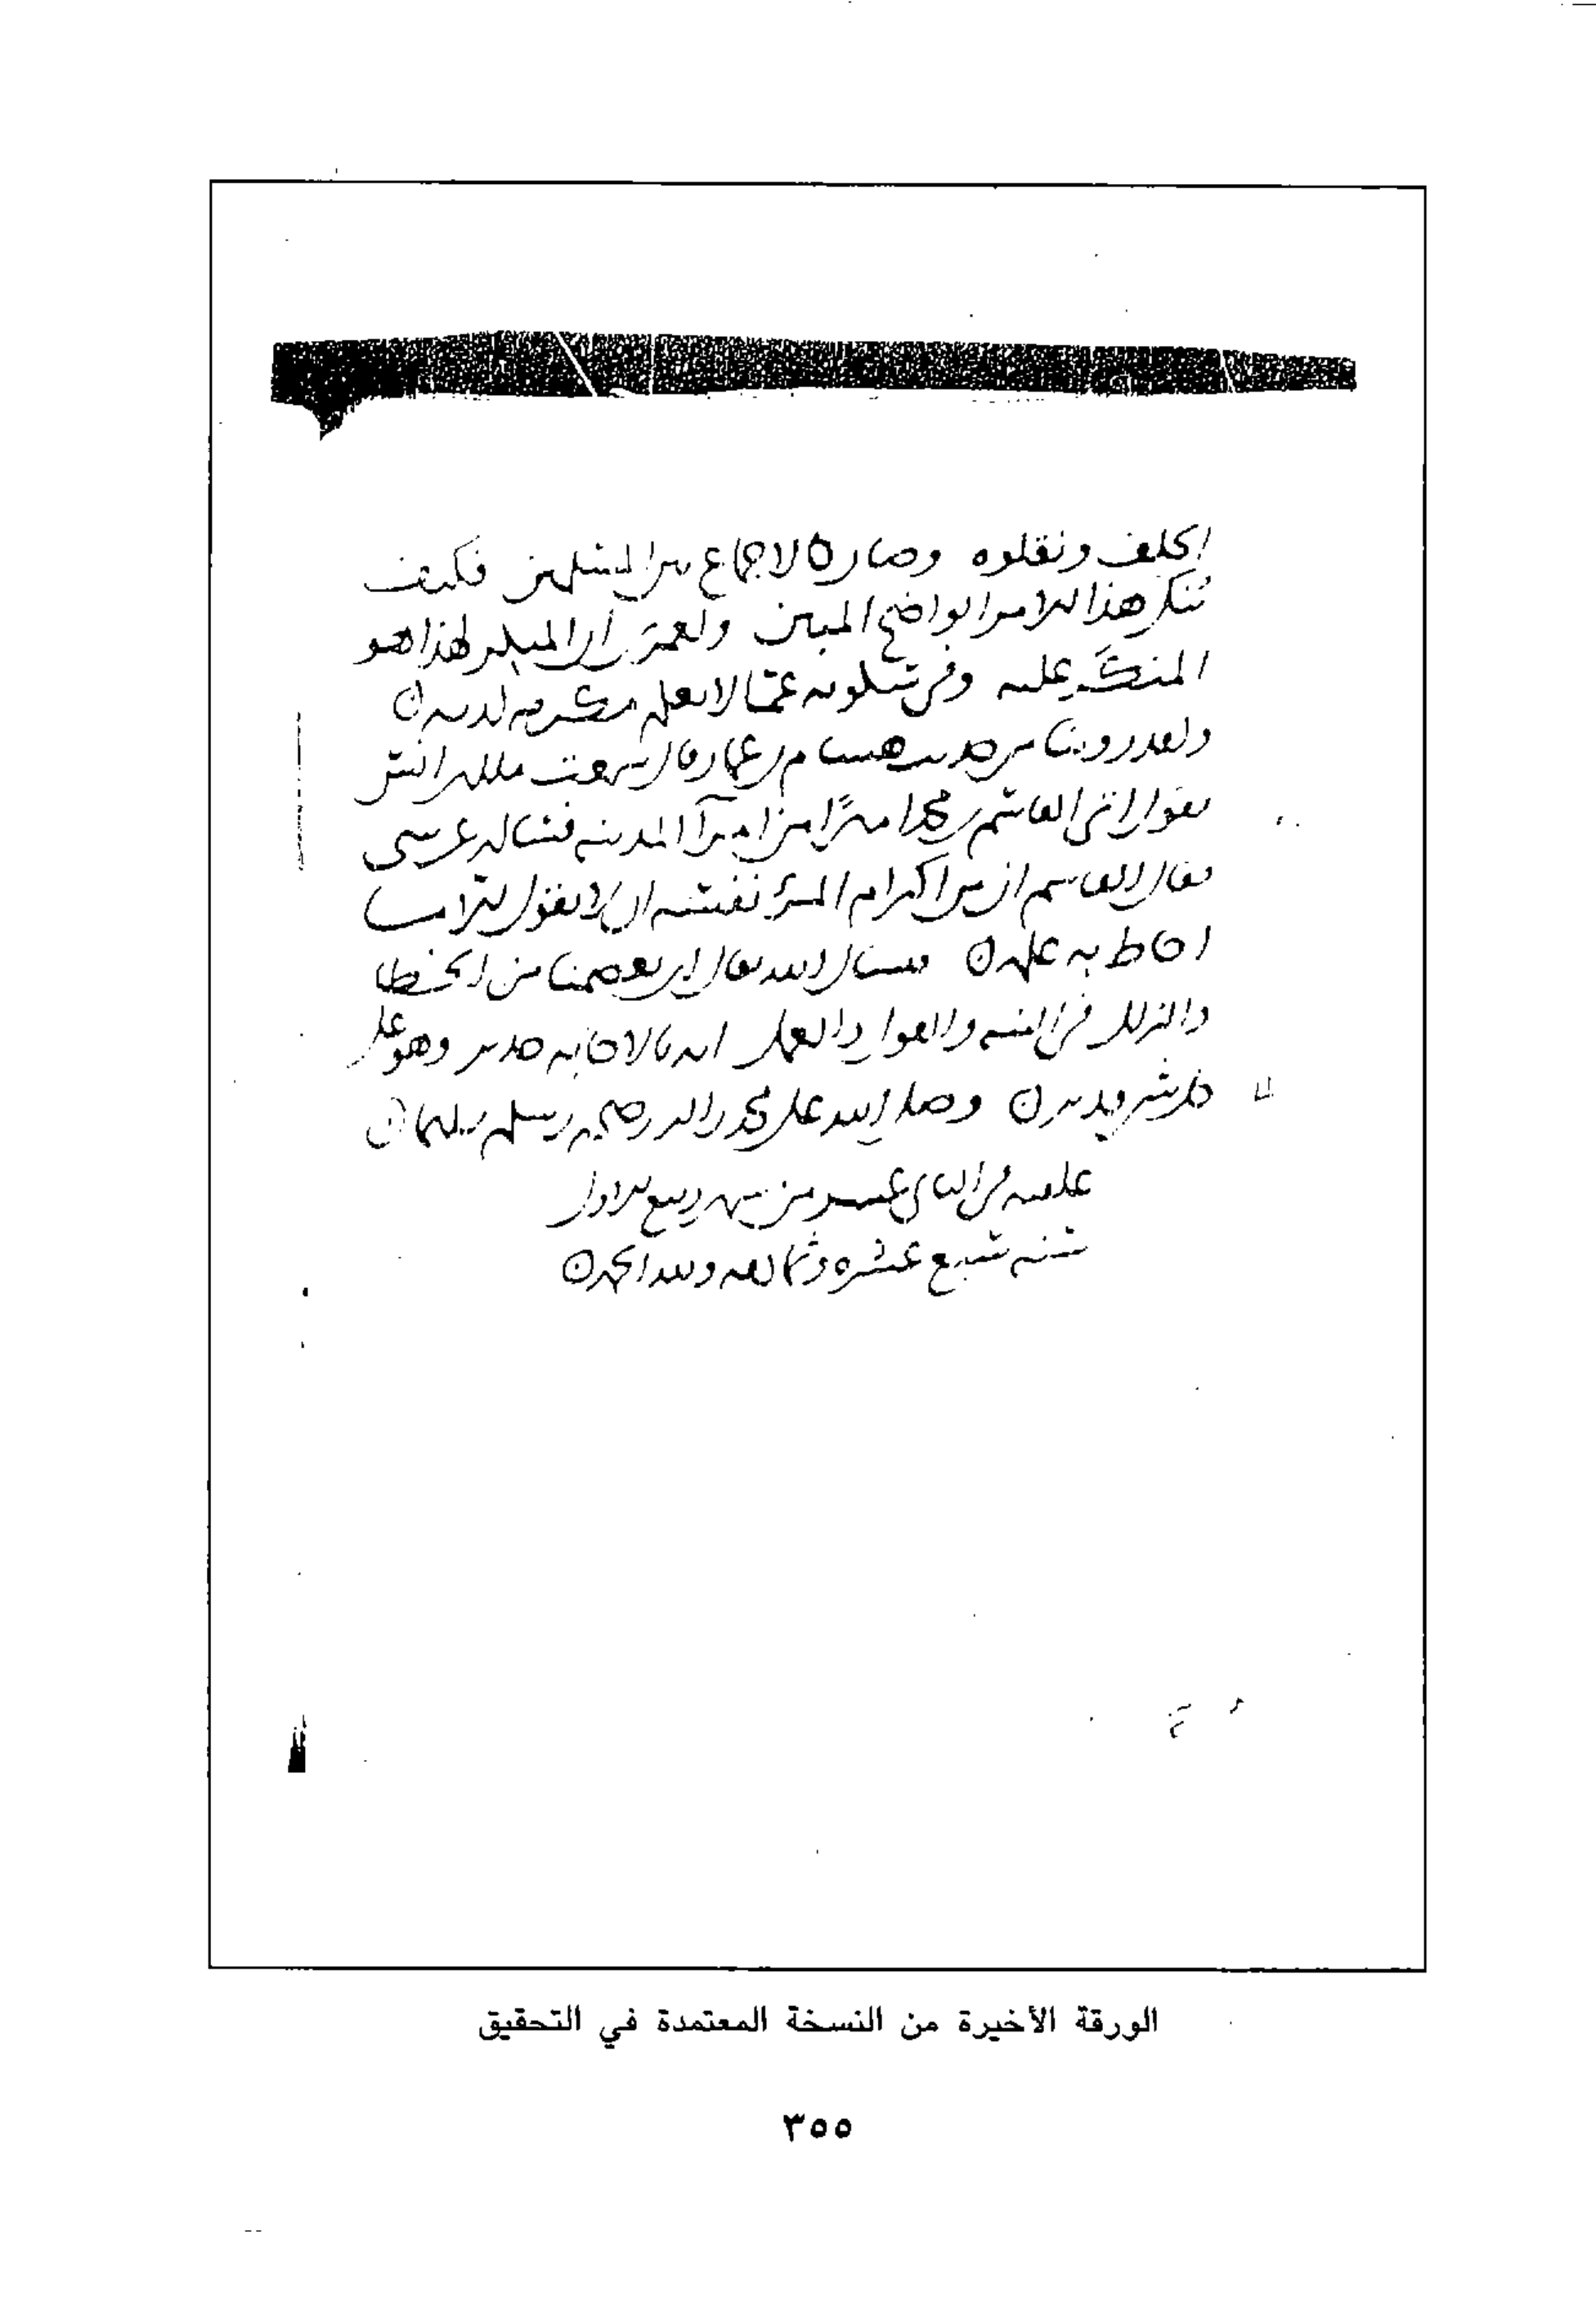 الخلف ونقلوه وصار كالاجماع من المسلمين فكيف
تنكر هذا الامر الواضح المبين ولعمري ان المنكر لهذا هو
المنكر عليه وفي سكوته عما لا يعلم مكرمه لديه
ولقد روينا من حديث هشام بن عمار قال سمعت ملك بن انس
يقول اتى القاسم بن محمدا ميرًا من امرآ المدينه فساله عن شى
فقال القاسم ان من اكرام المرء نفسه ان لا يقول الا ما
احاط به علمه فنسال الله تعالى ان يعصمنا من الخطا
والزلل في النيه والقول والعمل انه بالاجابه جدير وهو على
كل شي قدير وصلى الله على محمد واله وصحبه وسلم
علقه في الثاني عشر من شهر ربيع الاول
سنه سبع عشره وثمانمائه ولله الحمد
الورقة الأخيرة من النسخة المعتمدة في التحقيق
٣٥٥